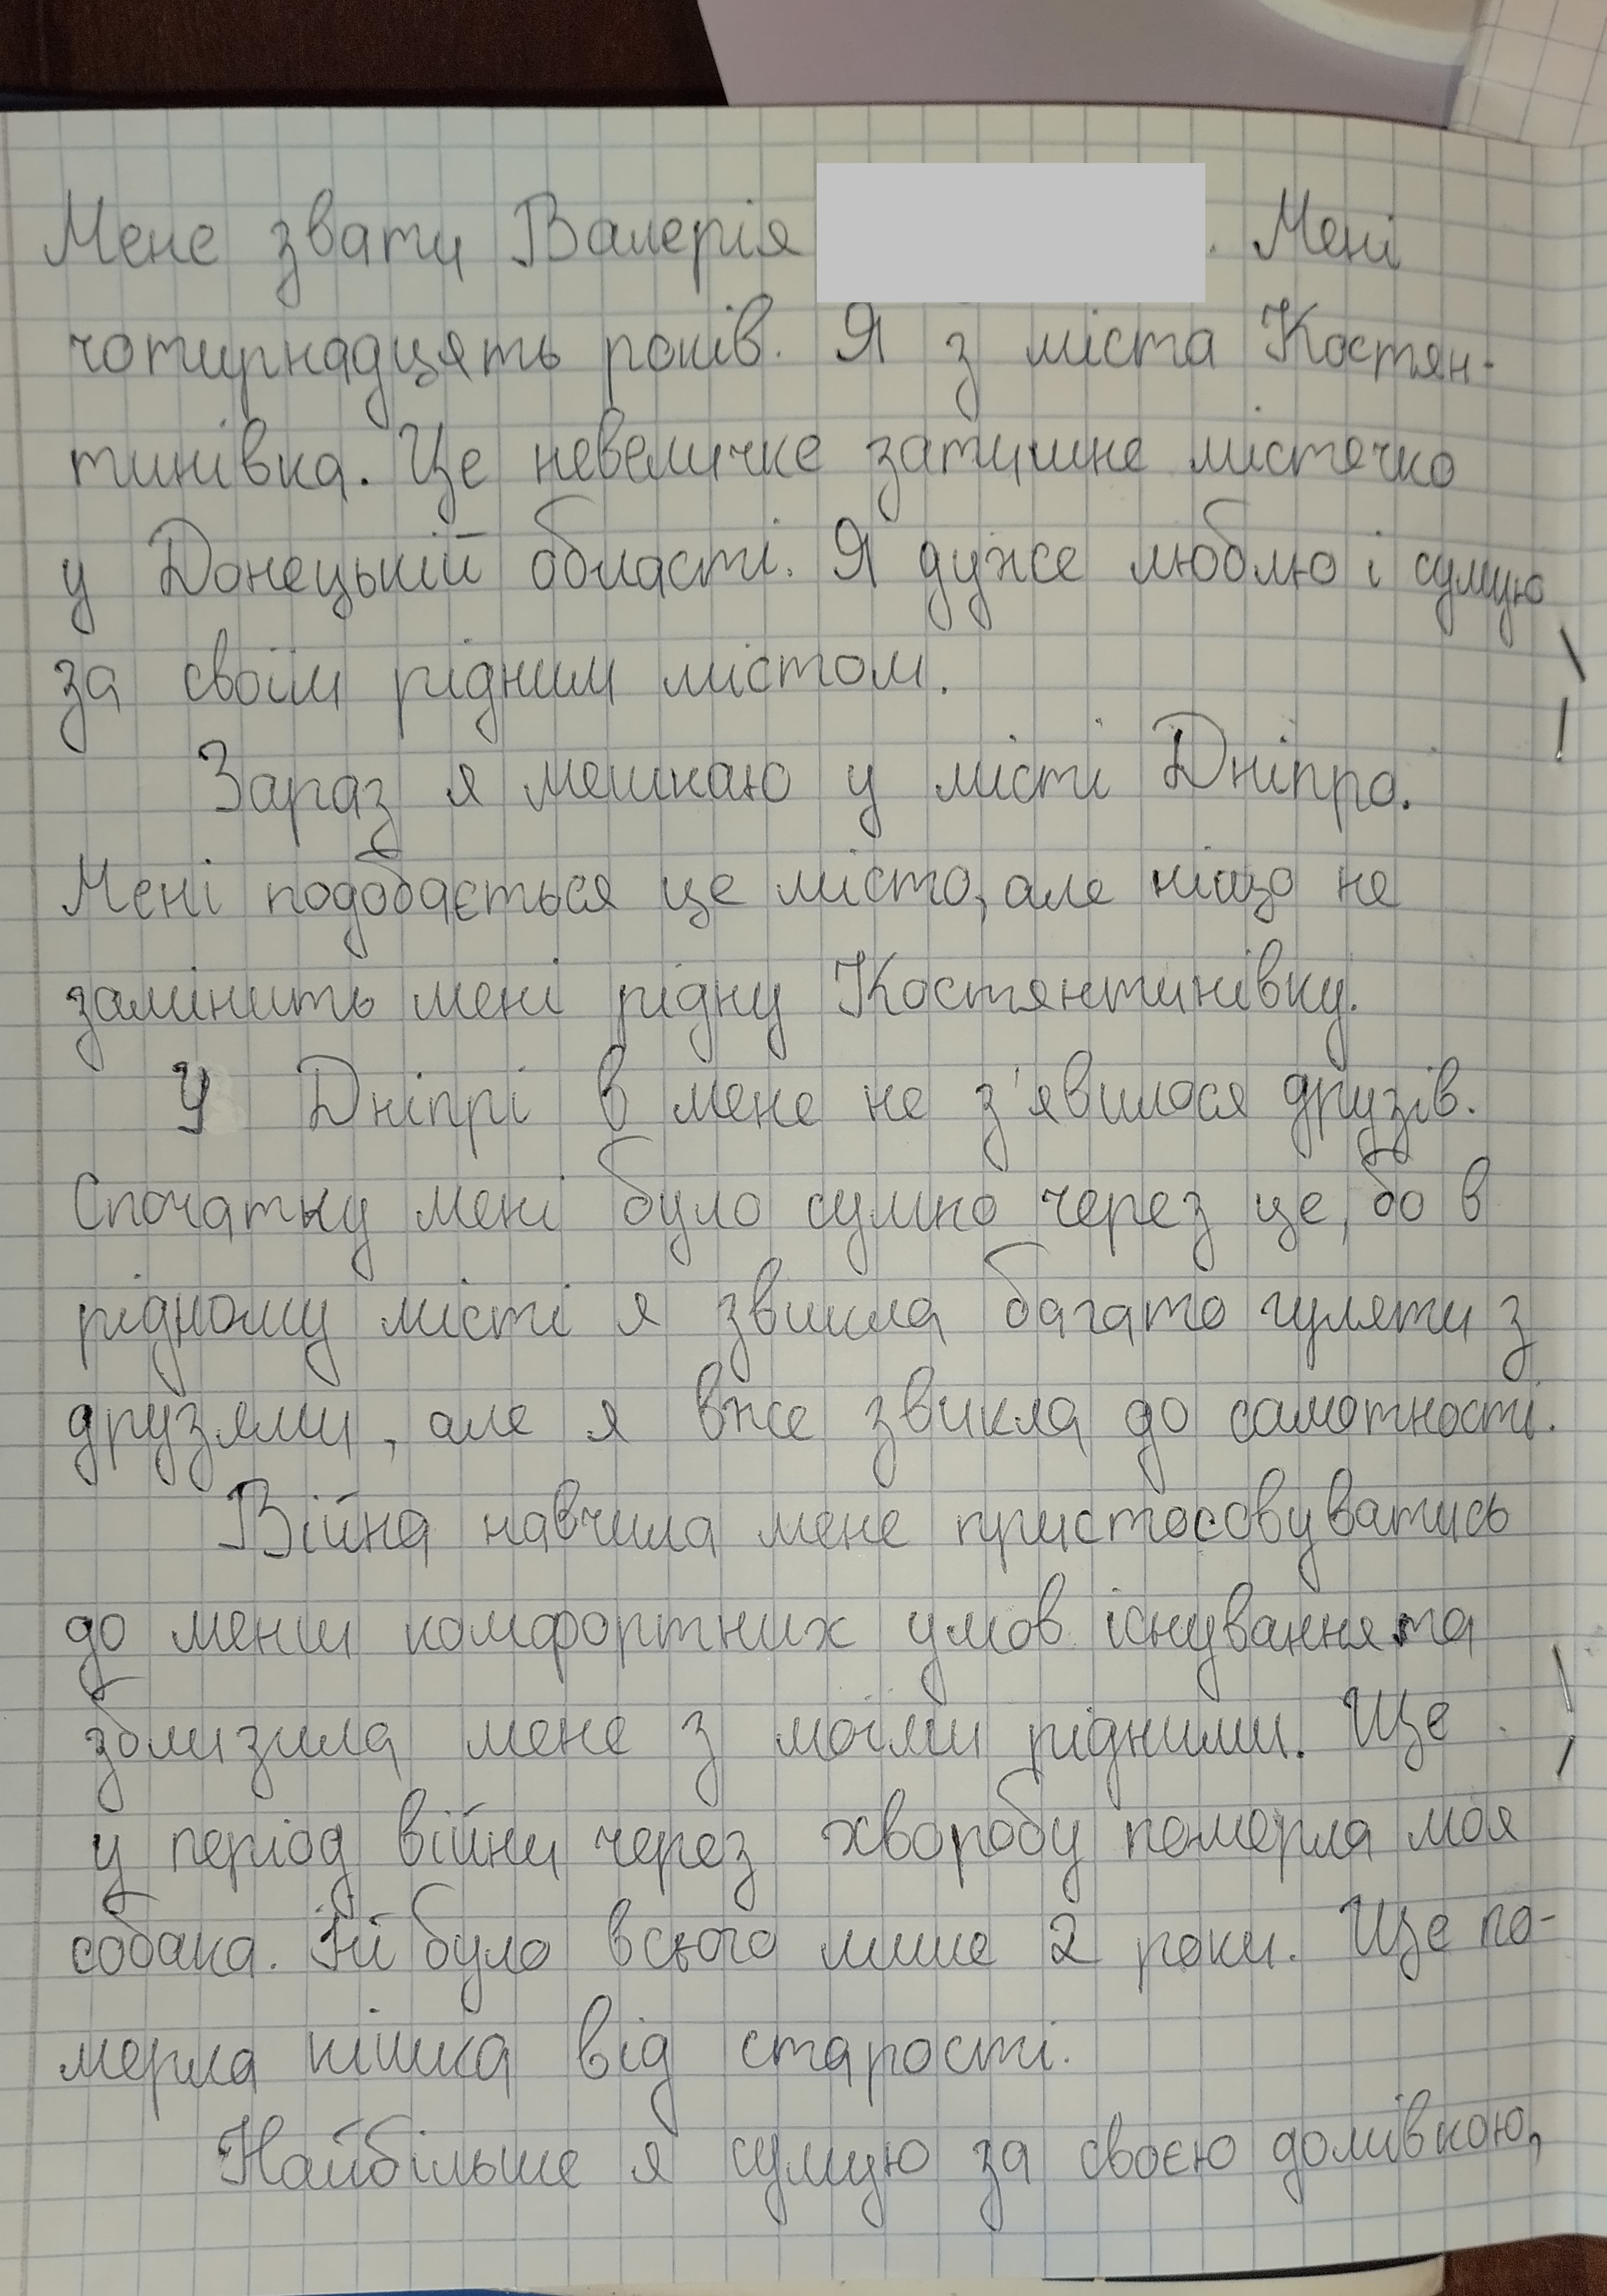 Мене звати Валерія . Мені
чотирнадцять років. Я з міста Костян-
тинівка. Це невеличке затишне містечко
у Донецькій області. Я дуже люблю і сумую
за своїм рідним містом.
Зараз я мешкаю у місті Дніпро.
Мені подобається це місто, але ніщо не
замінить мені рідну Костянтинівку.
У Дніпрі в мене не з'явилося друзів.
Спочатку мені було сумно через це, бо в
рідному місті я звикла багато гуляти з
друзями, але я вже звикла до самотності.
Війна навчила мене пристосовуватись
до менш комфортних умов існування та
зблизила мене з моїми рідними. Ще
у період війни через хворобу померла моя
собака. Їй було всього лише 2 роки. Ще по-
мерла кішка від старості.
Найбільше я сумую за своєю домівкою,